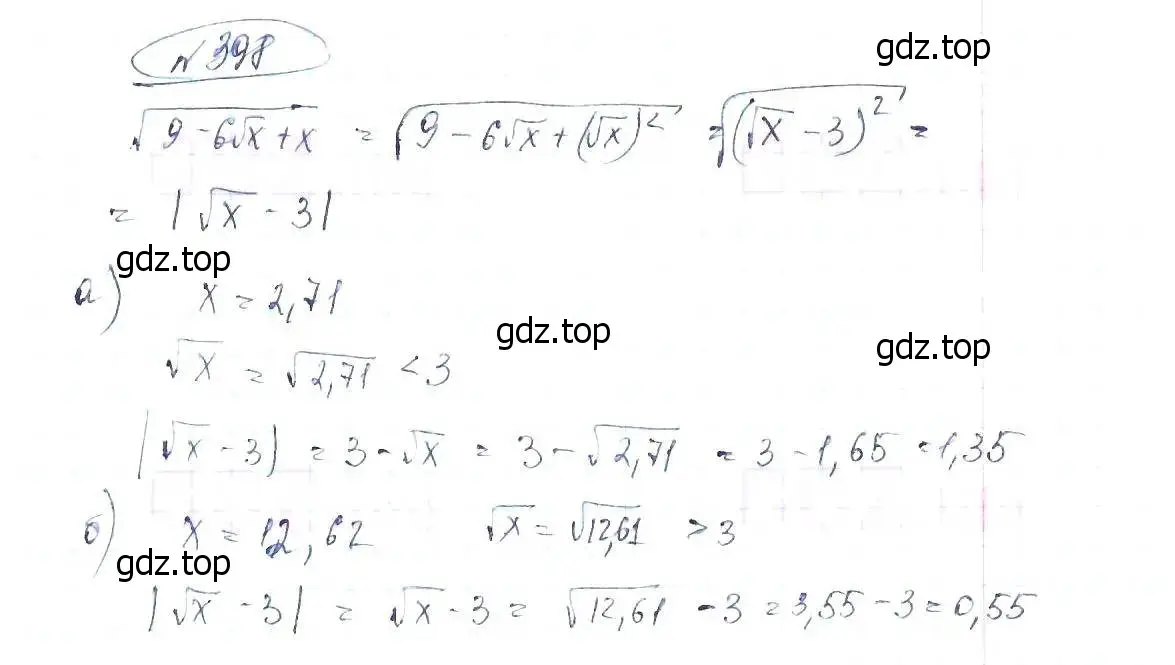 №398
gdz.top
√(9 - 6√x + x) = √(9 - 6√x + (√x)²) = √((√x - 3)²) =
= |√x - 3|
gdz.top
а) x = 2,71
gdz.top
√x = √2,71 < 3
gdz.top
|√x - 3| = 3 - √x = 3 - √2,71 = 3 - 1,65 = 1,35
б) x = 12,62 √x = √12,61 > 3
gdz.top
|√x - 3| = √x - 3 = √12,61 - 3 = 3,55 - 3 = 0,55